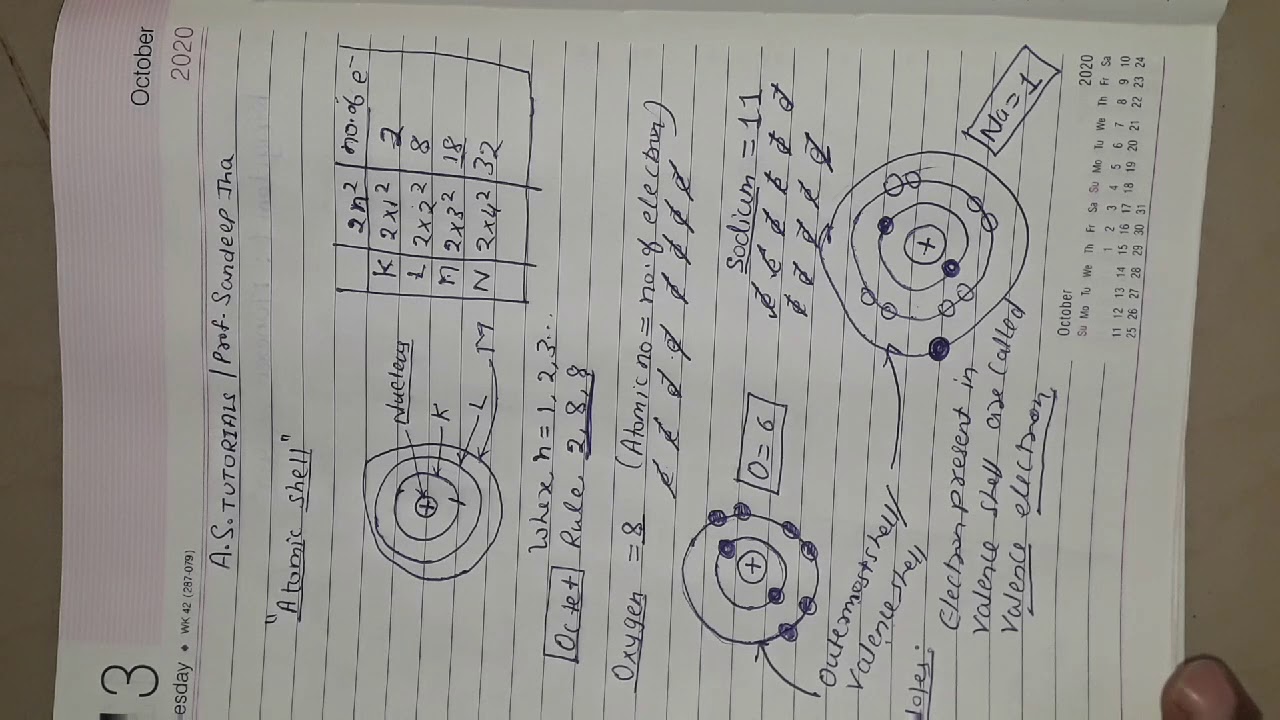 October
3
2020
esday ◆ WK 42 (287-079)
A.S. TUTORIALS / Prof. Sandeep Jha
"Atomic shell"
Nucleus
K
L
M
2n² no. of e⁻
K 2x1² 2
L 2x2² 8
M 2x3² 18
N 2x4² 32
Where n = 1, 2, 3...
Octet Rule 2, 8, 8
Oxygen = 8 (Atomic no = no. of electron)
e e e e e e e e
O = 6
Sodium = 11
e e e e e e
e e e e e
Na = 1
Outermost shell/
Valence shell
otes:
Electron present in
valence shell are called
valence electron
October 2020
Su Mo Tu We Th Fr Sa Su Mo Tu We Th Fr Sa
1 2 3 4 5 6 7 8 9 10
11 12 13 14 15 16 17 18 19 20 21 22 23 24
25 26 27 28 29 30 31